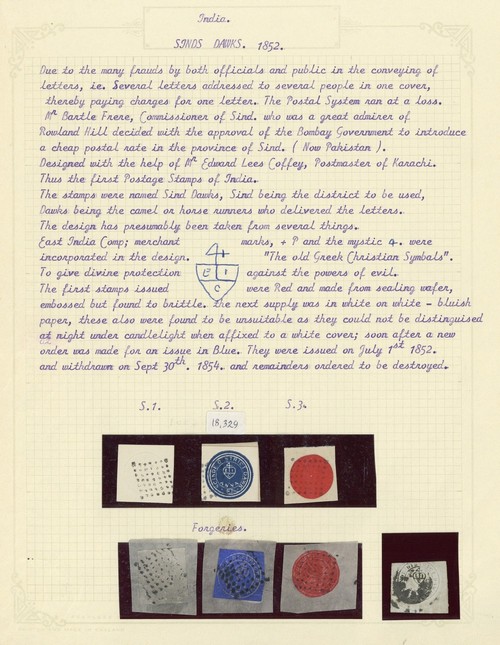 India.
SINDS DAWKS. 1852.
Due to the many frauds by both officials and public in the conveying of
letters, ie. Several letters addressed to several people in one cover,
thereby paying charges for one letter. The Postal System ran at a loss.
Mr Bartle Frere, Commissioner of Sind. who was a great admirer of
Rowland Hill decided with the approval of the Bombay Government to introduce
a cheap postal rate in the province of Sind. ( Now Pakistan ).
Designed with the help of Mr Edward Lees Coffey, Postmaster of Karachi.
Thus the first Postage Stamps of India.
The stamps were named Sind Dawks, Sind being the district to be used,
Dawks being the camel or horse runners who delivered the letters.
The design has presumably been taken from several things.
East India Comp; merchant marks, + P and the mystic 4. were
incorporated in the design. "The old Greek Christian Symbols".
To give divine protection against the powers of evil.
E I
C
The first stamps issued were Red and made from sealing wafer,
embossed but found to brittle. the next supply was in white on white - bluish
paper, these also were found to be unsuitable as they could not be distinguised
at night under candlelight when affixed to a white cover; soon after a new
order was made for an issue in Blue. They were issued on July 1st 1852.
and withdrawn on Sept 30th. 1854. and remainders ordered to be destroyed.
S.1. S.2. S.3.
18,329
Forgeries.